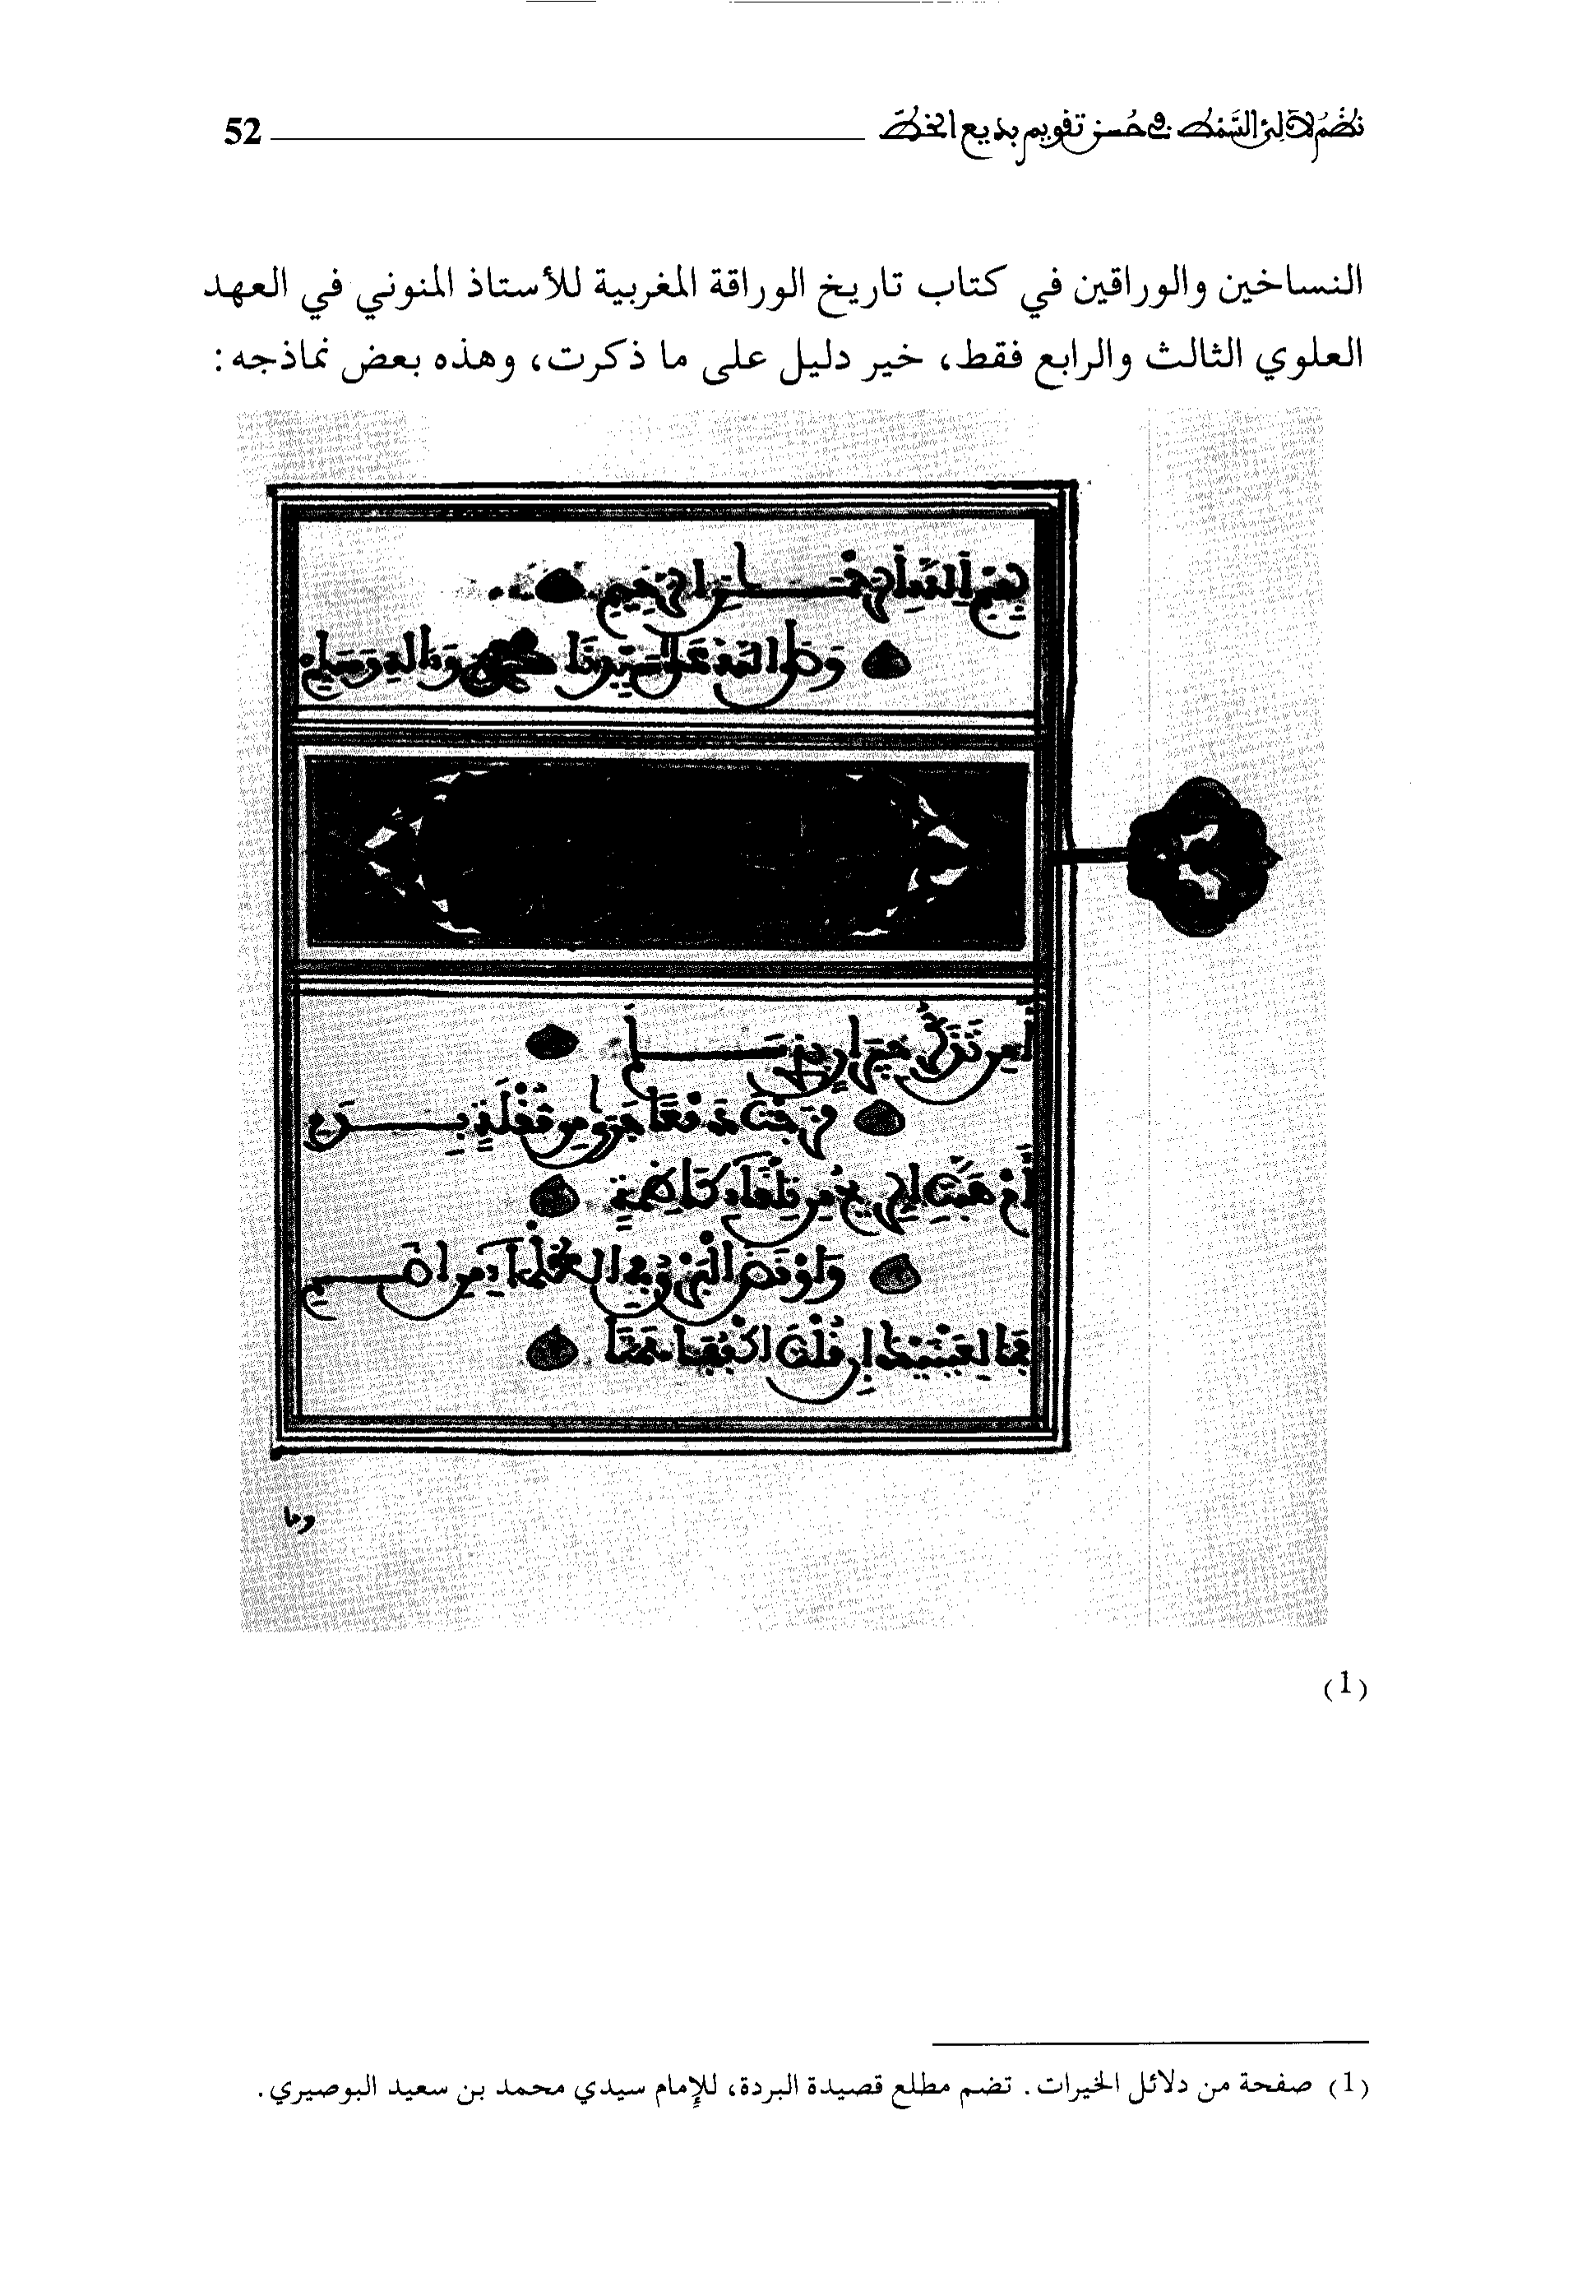 نظم لآلئ السمط في حسن تقويم بديع الخط 52
النساخين والوراقين في كتاب تاريخ الوراقة المغربية للأستاذ المنوني في العهد
العلوي الثالث والرابع فقط، خير دليل على ما ذكرت، وهذه بعض نماذجه:
بسم الله الرحمن الرحيم
وصلى الله على سيدنا محمد وآله وسلم
أمن تذكر جيران بذي سلم
مزجت دمعا جرى من مقلة بدم
أم هبت الريح من تلقاء كاظمة
وأومض البرق في الظلماء من إضم
فما لعينيك إن قلت اكففا همتا
وما
(1)
(1) صفحة من دلائل الخيرات. تضم مطلع قصيدة البردة، للإمام سيدي محمد بن سعيد البوصيري.